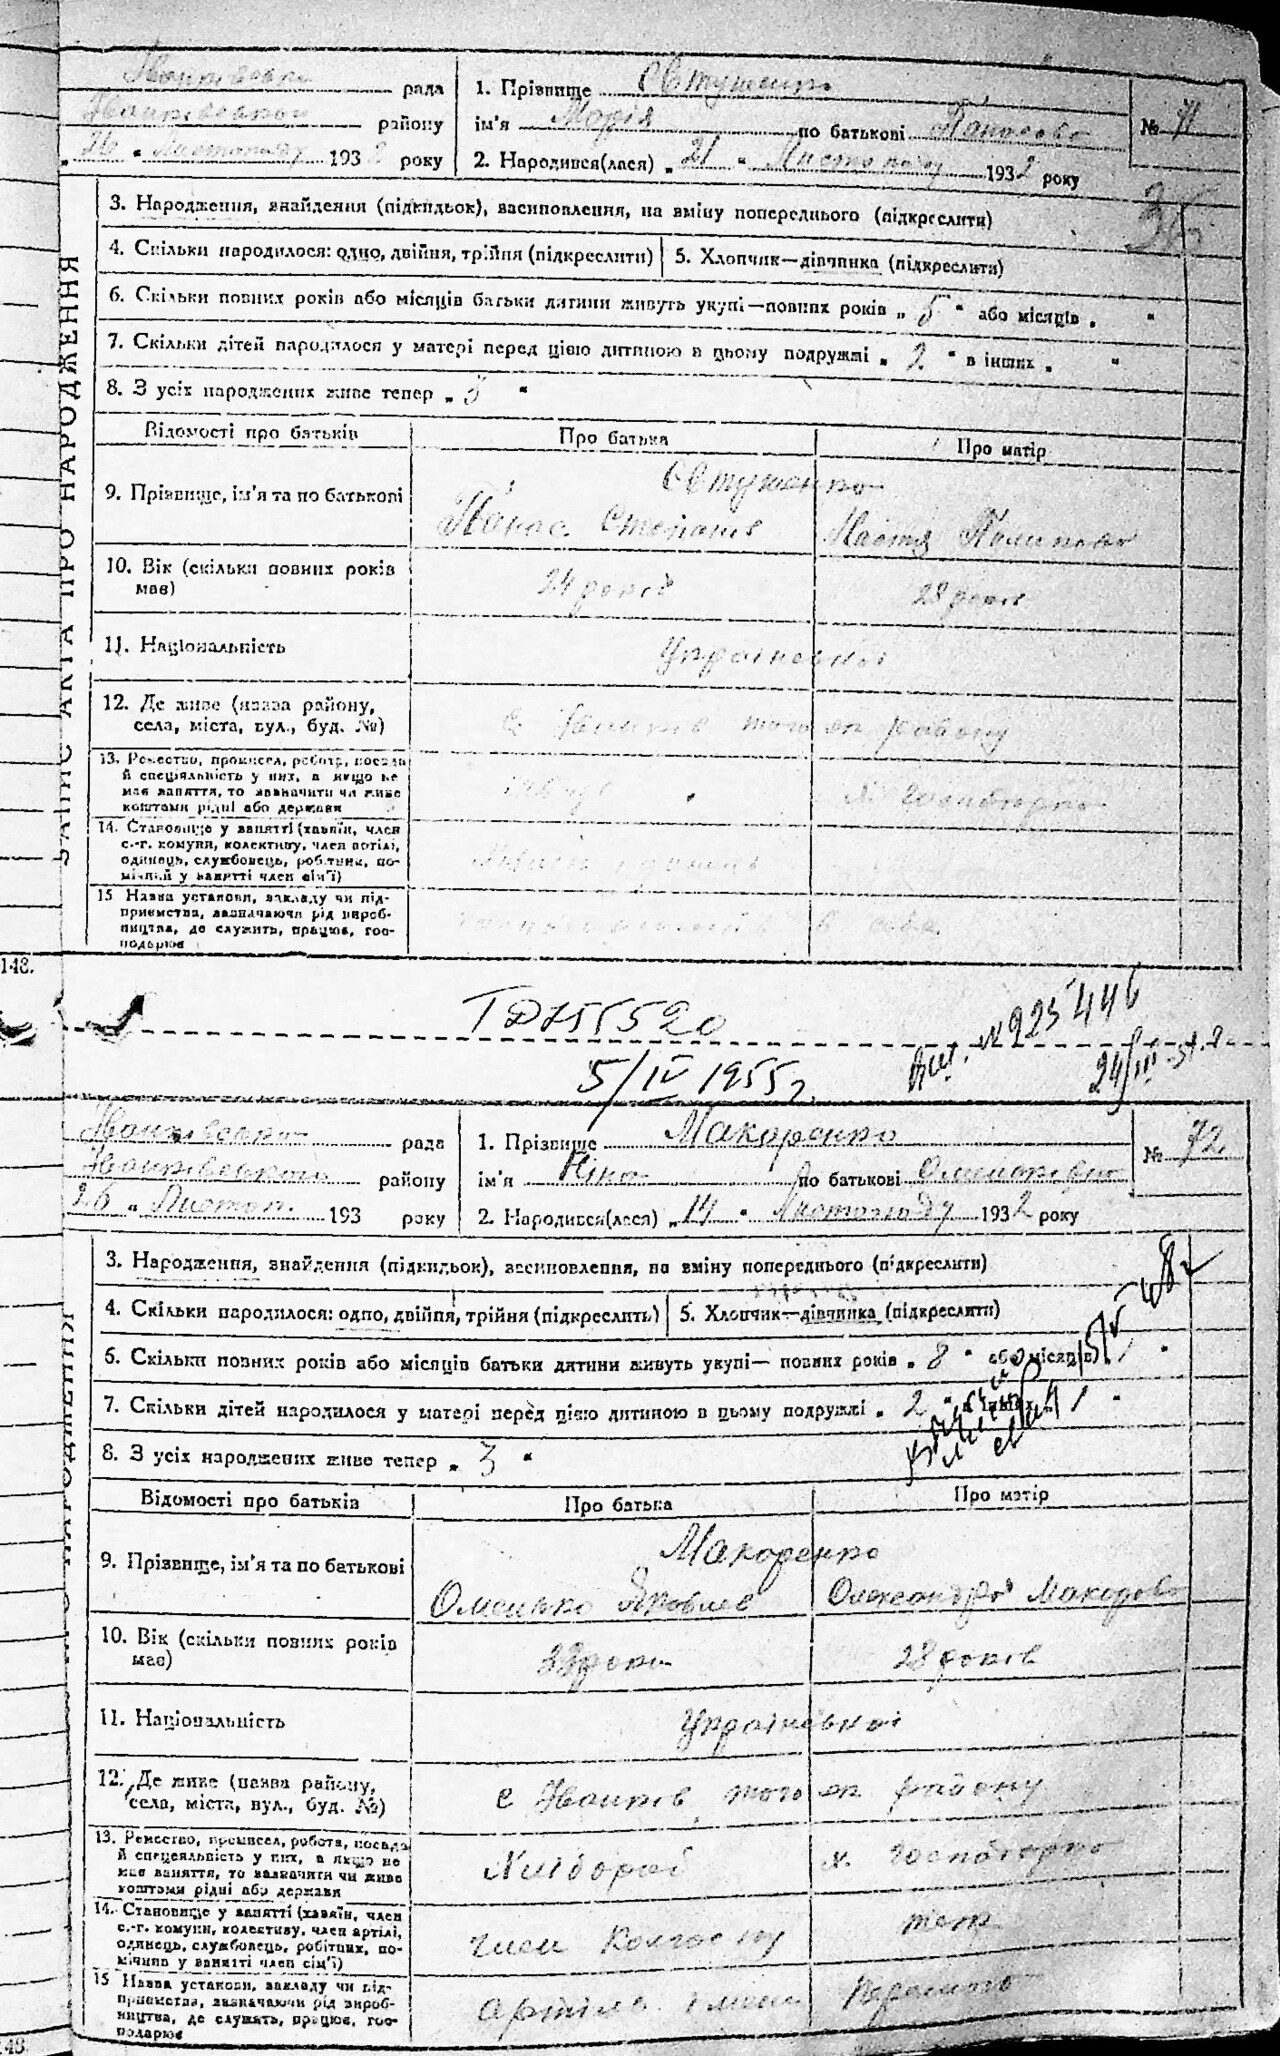 Іванківська рада
Іванківського району
„ 26 " Листопаду 1932 року
1. Прізвище Євтушенко
ім'я Марія по батькові Панасова
№ 71
2. Народився(лася) „ 21 " Листопаду 1932 року
3. Народження, знайдення (підкидьок), засиновлення, на зміну попереднього (підкреслити)
4. Скільки народилося: одно, двійня, трійня (підкреслити) 5. Хлопчик—дівчинка (підкреслити)
6. Скільки повних років або місяців батьки дитини живуть укупі—повних років „ 5 " або місяців „ "
7. Скільки дітей народилося у матері перед цією дитиною в цьому подружжі „ 2 " в інших „ "
8. З усіх народжених живе тепер „ 3 "
ЗАПИС АКТА ПРО НАРОДЖЕННЯ
Відомості про батьків Про батька Про матір
9. Прізвище, ім'я та по батькові
Євтушенко
Панас Степанів Настя
10. Вік (скільки повних років має)
24 років 28 років
11. Національність
Української
12. Де живе (назва району,
села, міста, вул., буд. №)
с Іванків того ж району
13. Ремество, промисел, робота, посада
й спеціяльність у них, а якщо не
має заняття, то зазначити чи живе
коштами рідні або держави
х. господарка
14. Становище у занятті (хазяїн, член
с.-г. комуни, колективу, член артілі,
одинець, службовець, робітник, по-
мічний у занятті член сім'ї)
15 Назва установи, закладу чи під-
приємства, зазначаючи рід вироб-
ництва, де служить, працює, гос-
подарює
148.
5/IV 1955 г.
№ 925446
24/III-51 г.
Іванківська рада
Іванківського району
26 " Листоп. 193 року
1. Прізвище Макаренко
ім'я Ніна по батькові Омельківна
№ 72
2. Народився(лася) „ 14 " Листопаду 1932 року
3. Народження, знайдення (підкидьок), засиновлення, на зміну попереднього (підкреслити)
4. Скільки народилося: одно, двійня, трійня (підкреслить) 5. Хлопчик—дівчинка (підкреслити)
6. Скільки повних років або місяців батьки дитини живуть укупі— повних років „ 8 " або місяців „ "
7. Скільки дітей народилося у матері перед цією дитиною в цьому подружжі „ 2 " в інших „ "
8. З усіх народжених живе тепер „ 3 "
Відомості про батьків Про батька Про матір
9. Прізвище, ім'я та по батькові
Макаренко
Омелько Яковлев Олександра Макарова
10. Вік (скільки повних років
має)
28 років
11. Національність
Української
12. Де живе (назва району,
села, міста, вул., буд. №)
с Іванків того ж району
13. Ремество, промисел, робота, посада
й спеціяльність у них, а якщо не
має заняття, то зазначити чи живе
коштами рідні або держави
Хлібороб х. господарка
14. Становище у занятті (хазяїн, член
с.-г. комуни, колективу, член артілі,
одинець, службовець, робітник, по-
мічник у занятті член сім'ї)
член колгоспу теж
15 Назва установи, закладу чи під-
приємства, зазначаючи рід вироб-
ництва, де служить, працює, гос-
подарює
артіль імени
148.